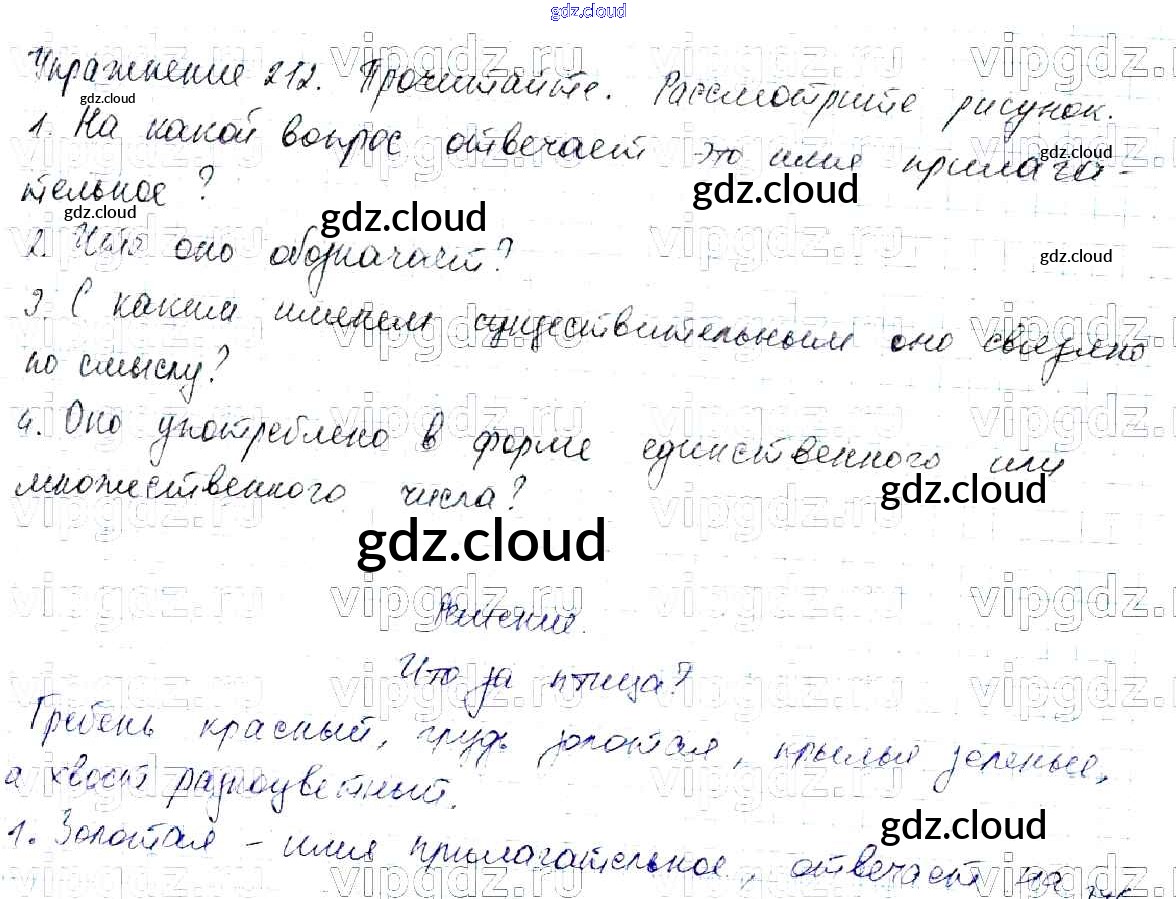 gdz.cloud
Упражнение 212. Прочитайте. Рассмотрите рисунок.
1. На какой вопрос отвечает это имя прилага-
тельное?
2. Что оно обозначает?
3. С каким именем существительным оно связано
по смыслу?
4. Оно употреблено в форме единственного или
множественного числа?
gdz.cloud
Решение.
Что за птица?
Гребень красный, грудь золотая, крылья зеленые,
а хвост разноцветный.
1. Золотая - имя прилагательное, отвечает на